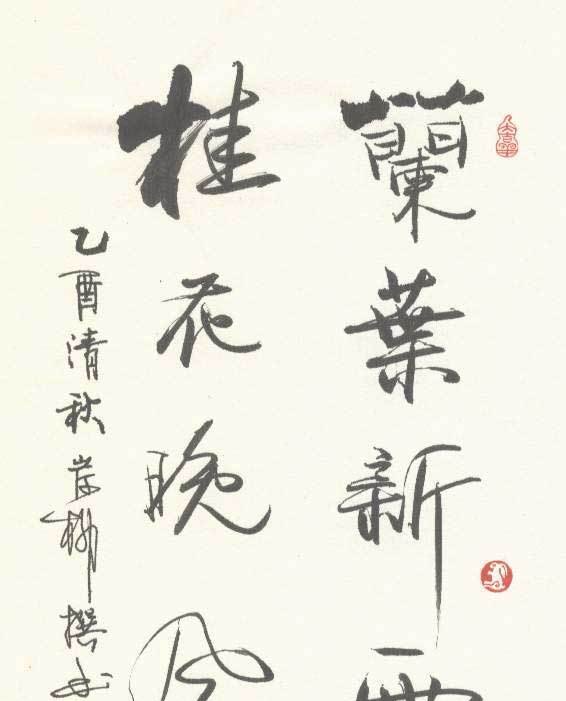 蘭葉新雨
桂花晚风
乙酉清秋岸柳撰书